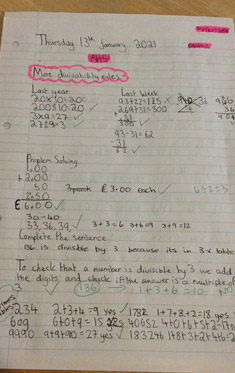 Thursday 13th January 2021
SHS
More divisibility rules
Last year
Last week
20x10=200
200÷10=20
3x9=27
27÷9=3
269+31=300
93-31=62
Problem Solving
1.00
+2.00
50
2.50
£6.00
£3.00 each
30-40
33,36,39
3+3=6 3+6=9 3+9=12
Complete the sentence
136 is divisible by 3 because its in 3x table
To check that a number is divisible by 3 we add
the digits and check if the answer is a multiple of
3 136 1+3+6=10 NO
234 2+3+4=9 yes 1782 1+7+8+2=18 yes
609 6+0+9=15 yes 40652 4+0+6+5+2=17
9990 9+9+90=27 yes 183246 1+8+3+2+4+6=2